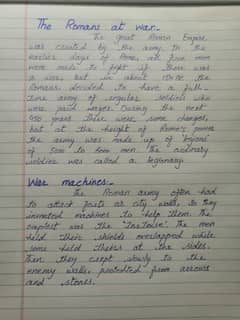 The Romans at war -
The great Roman Empire
was created by the army. In the
earliest days of Rome, all free men
were made to fight if there was
a war, but in about 100 BC the
Romans decided to have a full-
time army of regular soldiers who
were paid wages. During the next
450 years there were some changes,
but at the height of Rome's power
the army was made up of 'legions'
of 5000 to 6000 men. The ordinary
soldier was called a legionary.
War machines:-
The Roman army often had
to attack forts or city walls, so they
invented machines to help them. The
simplest was the 'Tortoise'. The men
held their shields overlapped while
some held theirs at the sides.
Then they crept slowly to the
enemy walls, protected from arrows
and stones.